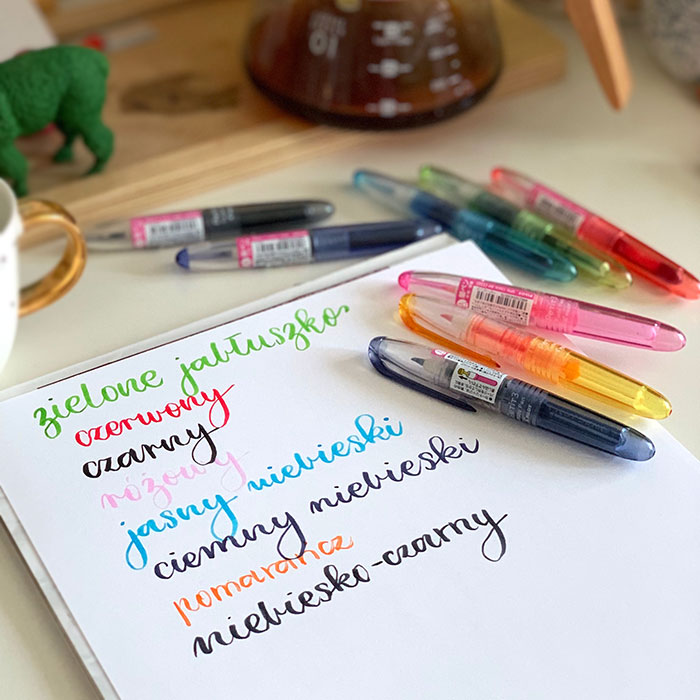 zielone jabłuszko
czerwony
czarny
różowy
jasny niebieski
ciemny niebieski
pomarańcz
niebiesko-czarny